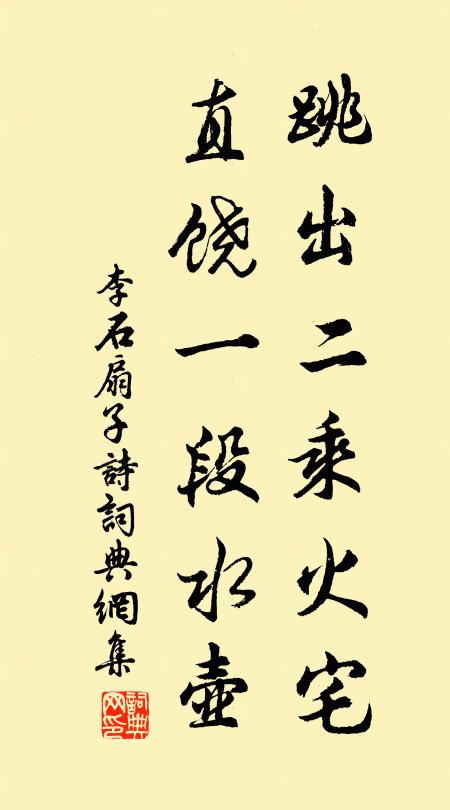 跳出二乘火宅
直饶一段水壶
李石扇子詩詞典網集
詞典
网印